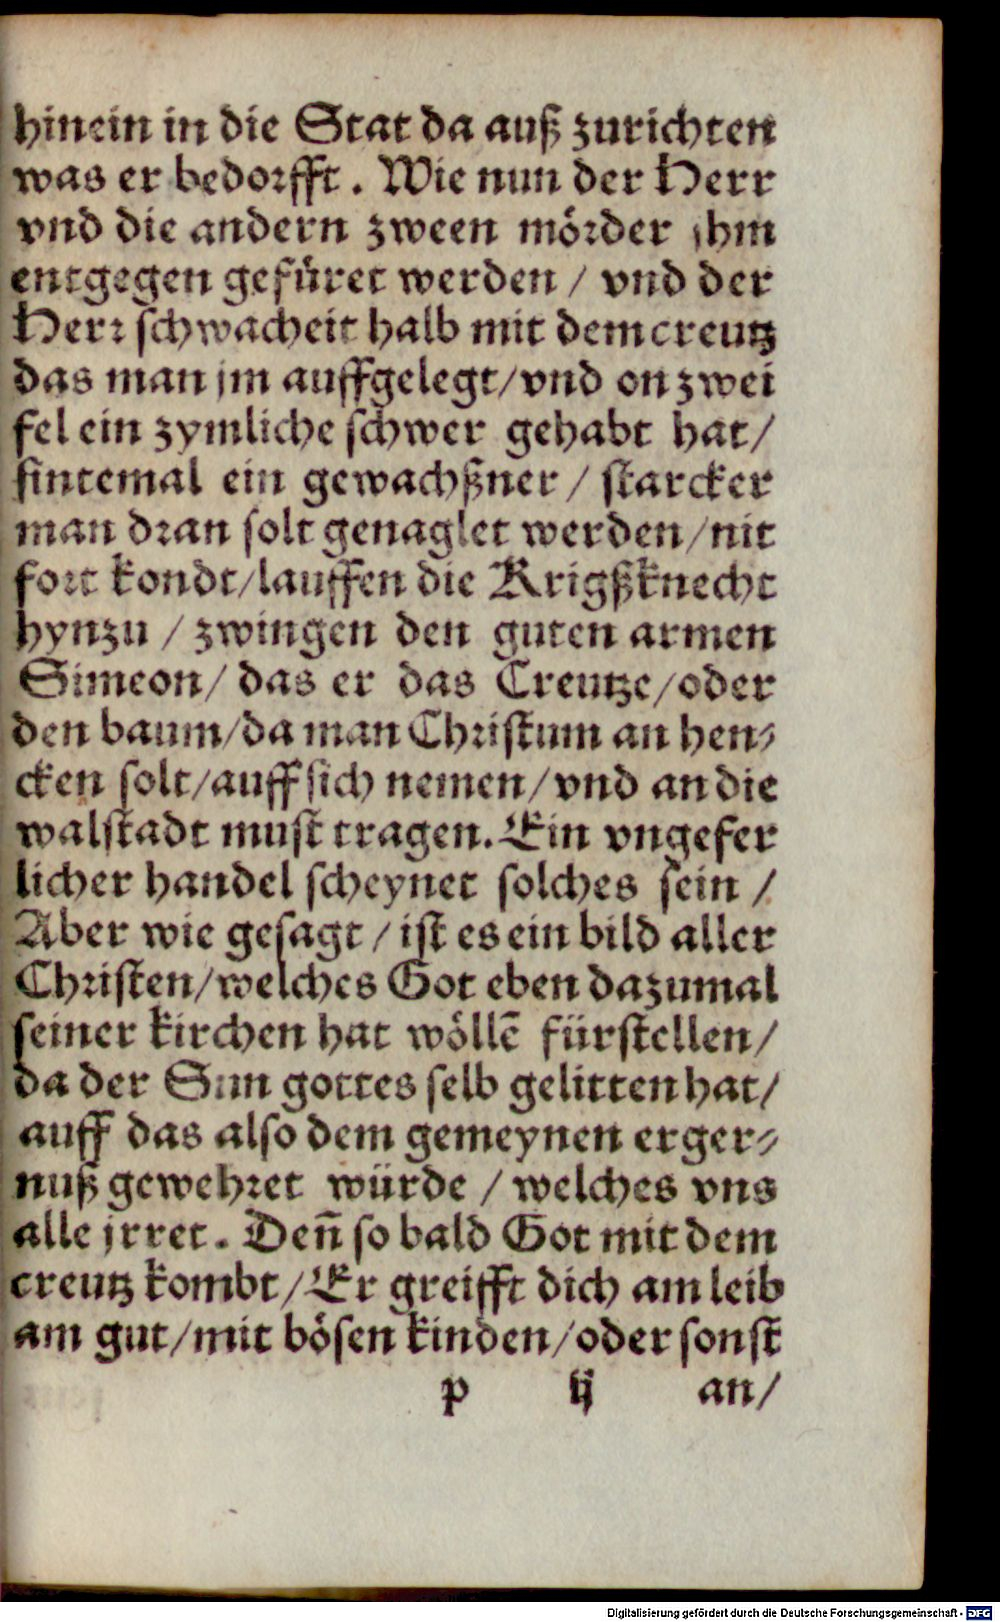 hinein in die Stat da auß zurichten
was er bedorfft. Wie nun der Herr
vnd die andern zween mörder jhm
entgegen gefüret werden / vnd der
Herr schwacheit halb mit dem creutz
das man jm auffgelegt/vnd on zwei
fel ein zymliche schwer gehabt hat/
sintemal ein gewachßner / starcker
man dran solt genaglet werden/nit
fort kondt/lauffen die Krigßknecht
hynzu / zwingen den guten armen
Simeon/ das er das Creutze/oder
den baum/da man Christum an hen⸗
cken solt/auff sich nemen/vnd an die
walstadt must tragen. Ein vngefer
licher handel scheynet solches sein /
Aber wie gesagt / ist es ein bild aller
Christen/welches Got eben dazumal
seiner kirchen hat wöllē fürstellen/
da der Sun gottes selb gelitten hat/
auff das also dem gemeynen erger⸗
nuß gewehret würde / welches vns
alle jrret. Deñ so bald Got mit dem
creutz kombt/Er greifft dich am leib
am gut/mit bösen kinden/oder sonst
p ij an/
Digitalisierung gefördert durch die Deutsche Forschungsgemeinschaft - DFG